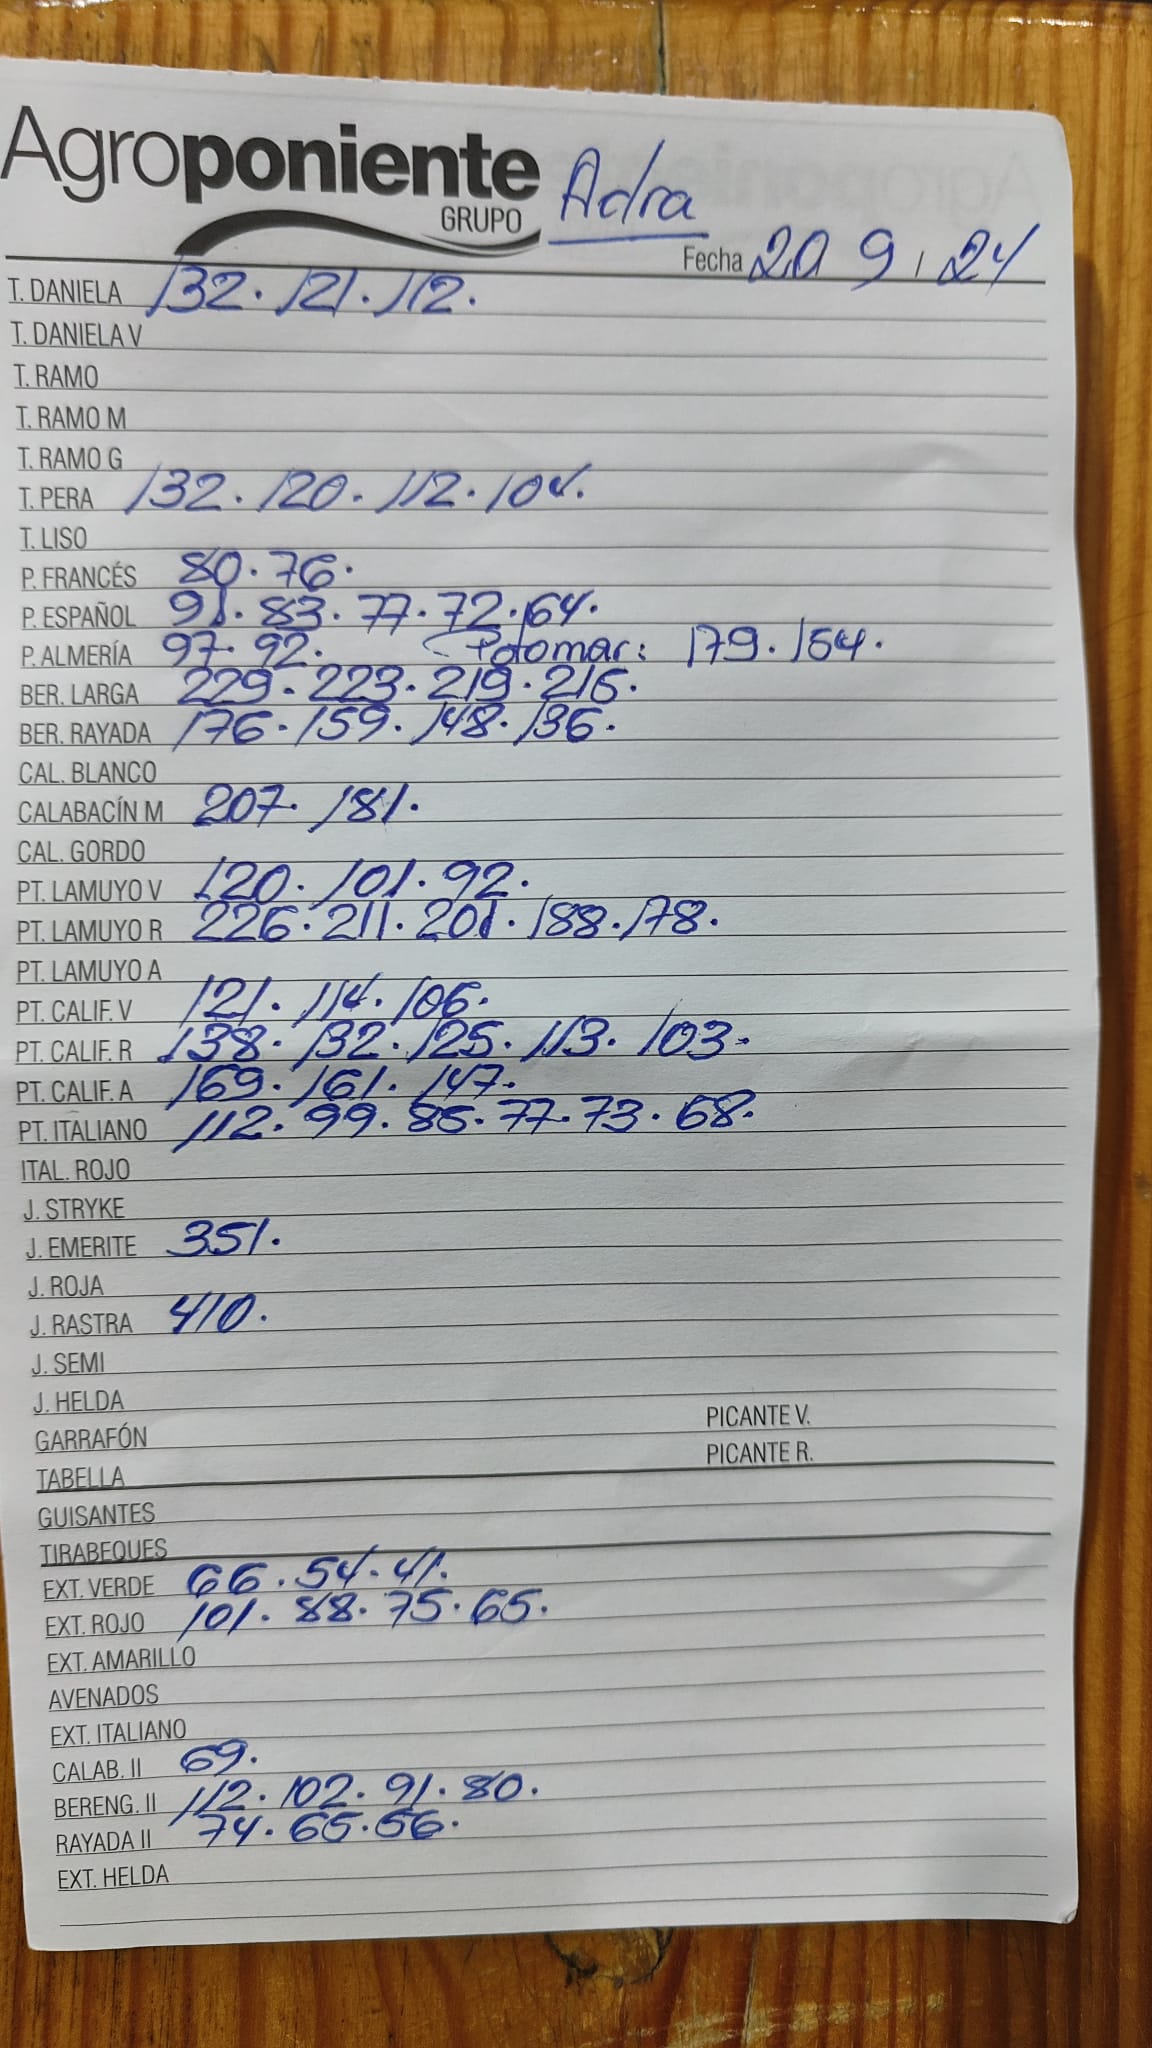 Agroponiente
GRUPO
Adra
Fecha 20 9 , 24
T. DANIELA 132. 121. 112.
T. DANIELA V
T. RAMO
T. RAMO M
T. RAMO G
T. PERA 132. 120. 112. 104.
T. LISO
P. FRANCÉS 80. 76.
P. ESPAÑOL 91. 83. 77. 72. 64.
P. ALMERÍA 97. 92. (Potomar: 179. 154.
BER. LARGA 229. 223. 219. 215.
BER. RAYADA 176. 159. 148. 136.
CAL. BLANCO
CALABACÍN M 207. 181.
CAL. GORDO
PT. LAMUYO V 120. 101. 92.
PT. LAMUYO R 226. 211. 201. 188. 178.
PT. LAMUYO A
PT. CALIF. V 121. 114. 106.
PT. CALIF. R 138. 132. 125. 113. 103.
PT. CALIF. A 169. 161. 147.
PT. ITALIANO 112. 99. 85. 77. 73. 68.
ITAL. ROJO
J. STRYKE
J. EMERITE 351.
J. ROJA
J. RASTRA 410.
J. SEMI
J. HELDA
PICANTE V.
GARRAFÓN
PICANTE R.
TABELLA
GUISANTES
TIRABEQUES
EXT. VERDE 66. 54. 41.
EXT. ROJO 101. 88. 75. 65.
EXT. AMARILLO
AVENADOS
EXT. ITALIANO
CALAB. II 69.
BERENG. II 112. 102. 91. 80.
RAYADA II 74. 65. 56.
EXT. HELDA